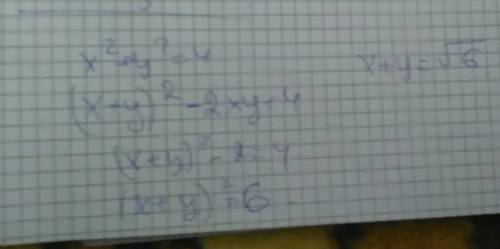 x² + y² = 4
(x+y)² - 2xy = 4
(x+y)² - 2 = 4
(x+y)² = 6
x+y = √6